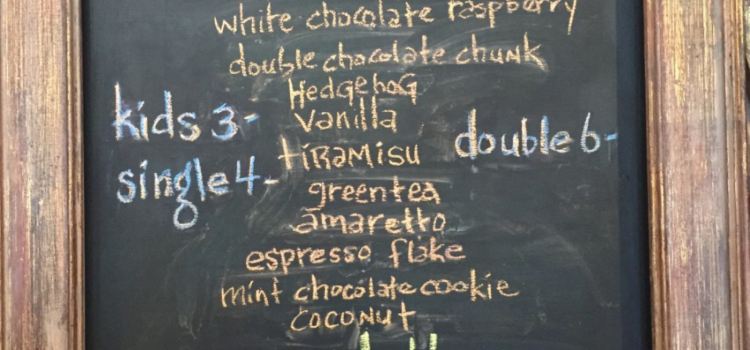 white chocolate raspberry
double chocolate chunk
Hedgehog
kids 3-
vanilla
double 6-
tiramisu
single 4-
greentea
amaretto
espresso flake
mint chocolate cookie
coconut